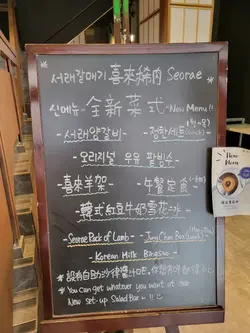 서래갈매기 喜來稀肉 Seorae
신메뉴 - 全新菜式 - New Menu!!
- 서래양갈비 - - 정찬세트(lunch) -
- 오리지널 우유 팥빙수 -
- 喜來羊架 - - 午餐定食 -
- 韓式紅豆牛奶雪花冰 -
- Seorae Rack of Lamb - - Jung Chan Box (Lunch) -
- Korean Milk Bingsu -
You can get whatever you want at our
New set-up Salad Bar ~!!
New Menu